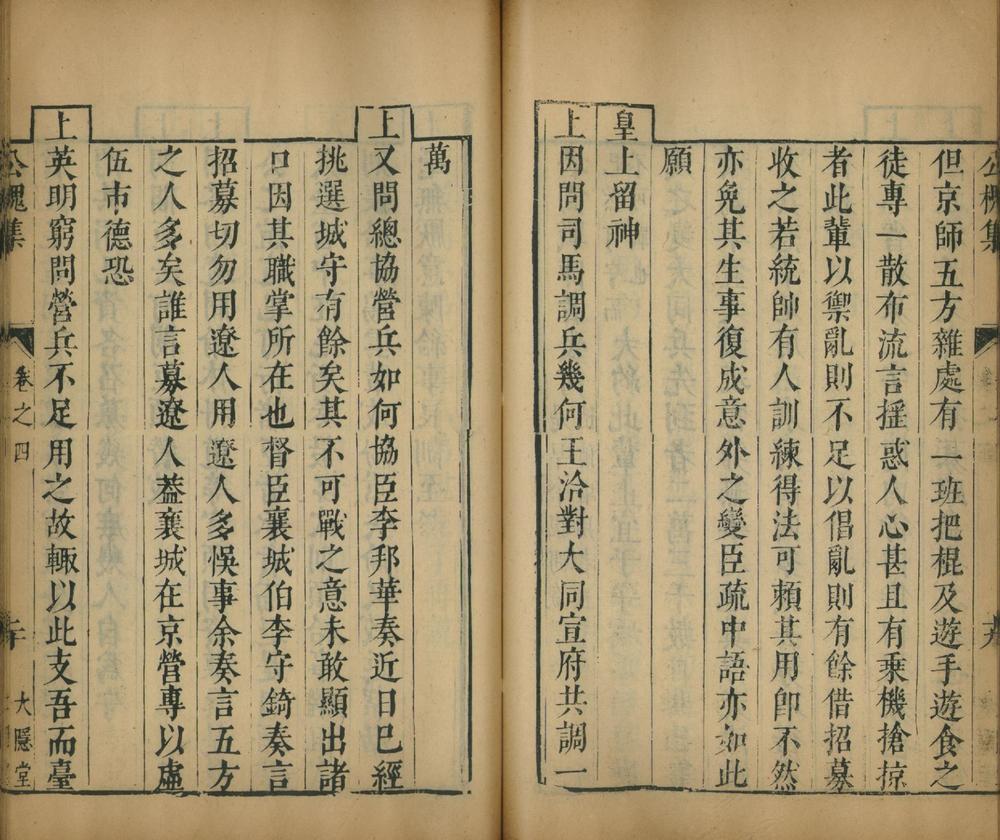 公槐集
十九
但京師五方雜處有一班把棍及遊手遊食之
徒專一散布流言揺惑人心甚且有乘機搶掠
者此輩以禦亂則不足以倡亂則有餘借招募
收之若統帥有人訓練得法可賴其用卽不然
亦免其生事復成意外之變臣疏中語亦如此
願
皇上留神
上因問司馬調兵幾何王洽對大同宣府共調一
萬
上又問總協營兵如何協臣李邦華奏近日已經
挑選城守有餘矣其不可戰之意未敢顯出諸
口因其職掌所在也督臣襄城伯李守錡奏言
招募切勿用遼人用遼人多悞事余奏言五方
之人多矣誰言募遼人葢襄城在京營專以虛
伍市德恐
上英明窮問營兵不足用之故輙以此支吾而臺
公槐集
卷之四
二十
大隱堂